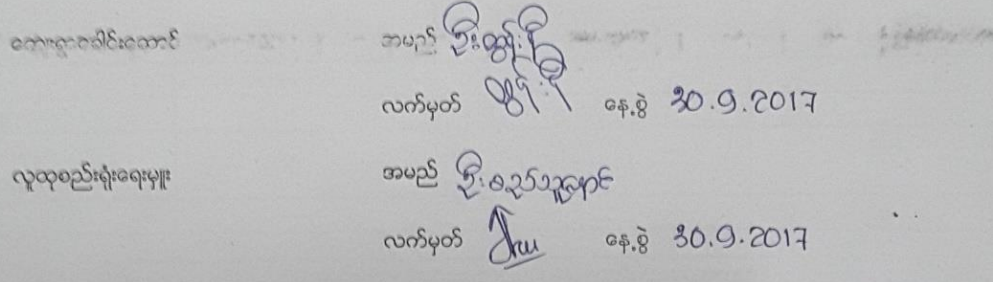 ကျေးရွာခေါင်းဆောင် အမည် ဦးထွန်းဦး
လက်မှတ် နေ့စွဲ 30.9.2017
လူထုစည်းရုံးရေးမှူး အမည် ဦး
လက်မှတ် နေ့စွဲ 30.9.2017